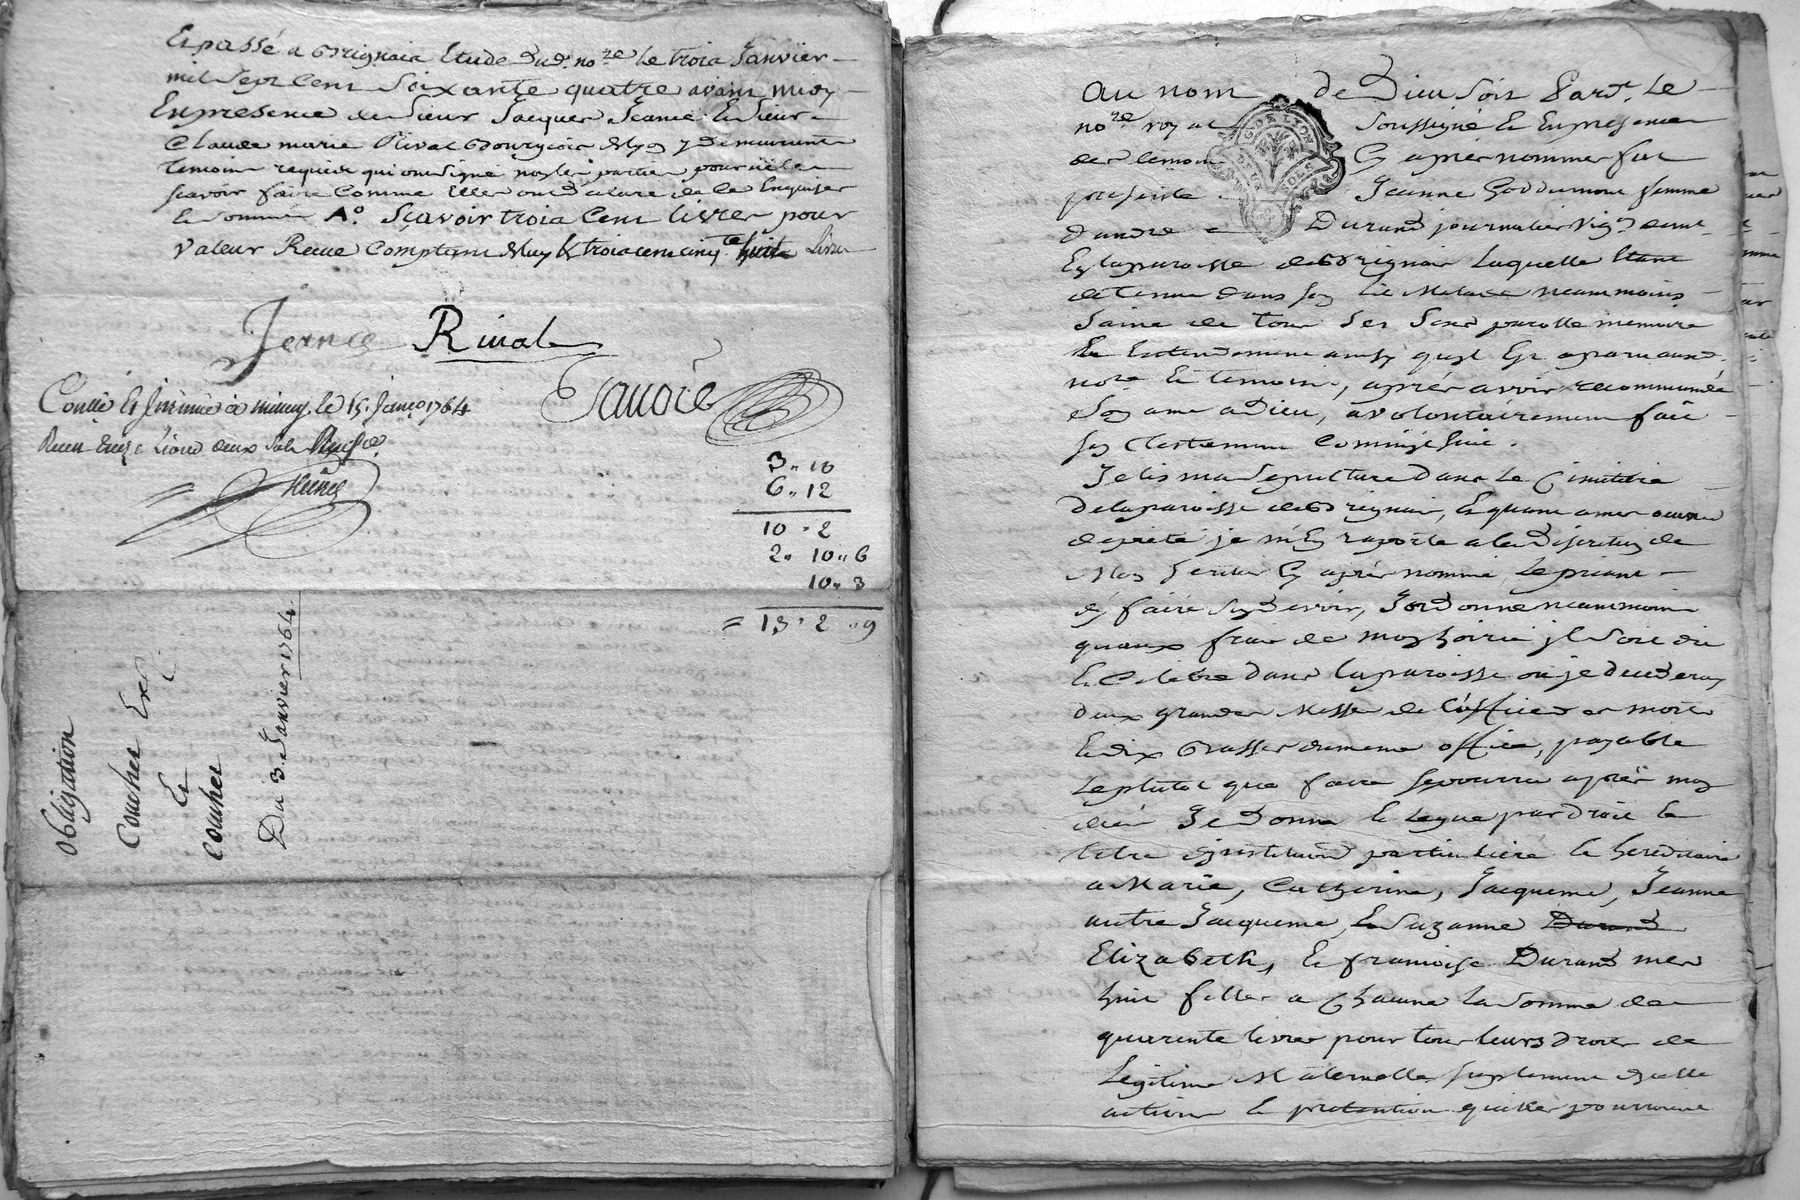 Et passé a Brignais Etude dud. no.re le trois Janvier
mil Sept Cent Soixante quatre avant midy
En presence de Sieur Jacques Jeance & Sieur
Claude marie Rivat Bourgeois de y demeurants
temoins requis qui ont signé non les parties pour ne le
scavoir faire Comme Elles ont declaré de ce Enquises
& Sommés A.o Sçavoir trois Cent livres pour
valeur Recue Comptant & trois cent cinq.te huit Livres
Jeance Rivat
Savoie
Conllé & Jnsinué a le 15. Janv. 1764
Reçu treize Livres deux sols neuf d.
3 " 10
6 " 12
10 " 2
2 " 10 " 6
10 " 3
= 13 " 2 " 9
Obligation
Couchet
&
Couchet
Du 3. Janvier 1764
Au nom de Dieu Soit Pard.t Le
no.re royal Soussigné & En presence
des temoins Cy aprés nommés fut
presente Jeanne Goddumone femme
d'andré Durand journalier vig.n dem.t
En la paroisse de Brignais Laquelle Etant
detenue dans son Lit Malade neanmoins
Saine de tous Ses Sens parolle memoire
& Entendement ainsy qu'il Est aparu aud.
no.re & temoins, aprés avoir recommandé
Son ame a Dieu, a volontairement fait
son testament Comm'il suit.
Je Elis ma Sepulture dans Le Cimitiere
De la paroisse de Brignais, & quant a mes oeuvres
de pieté je m'En raporte a la Discretion de
Mon heritier Cy aprés nommé, Le priant
d'y faire son devoir, J'ordonne neanmoins
qu'aux frais de mon hoirie il soit dit
& Celebré dans la paroisse ou je decederay
deux grandes Messes de L'office des morts
& dix Basses du meme office, payable
Le plutot que faire Se pourra aprés mon
decès Je Donne & Legue par droit &
titre d'institution particuliere & hereditaire
a Marie, Catherine, Jacqueme, Jeanne
autre Jacqueme, & Suzanne Durand
Elizabeth, & francoise Durand mes
huit filles a Chacune la Somme de
quarente livres pour tous leurs droits de
Legitime Maternelle, suplement d'icelle
action & pretention qu'elles pourroient